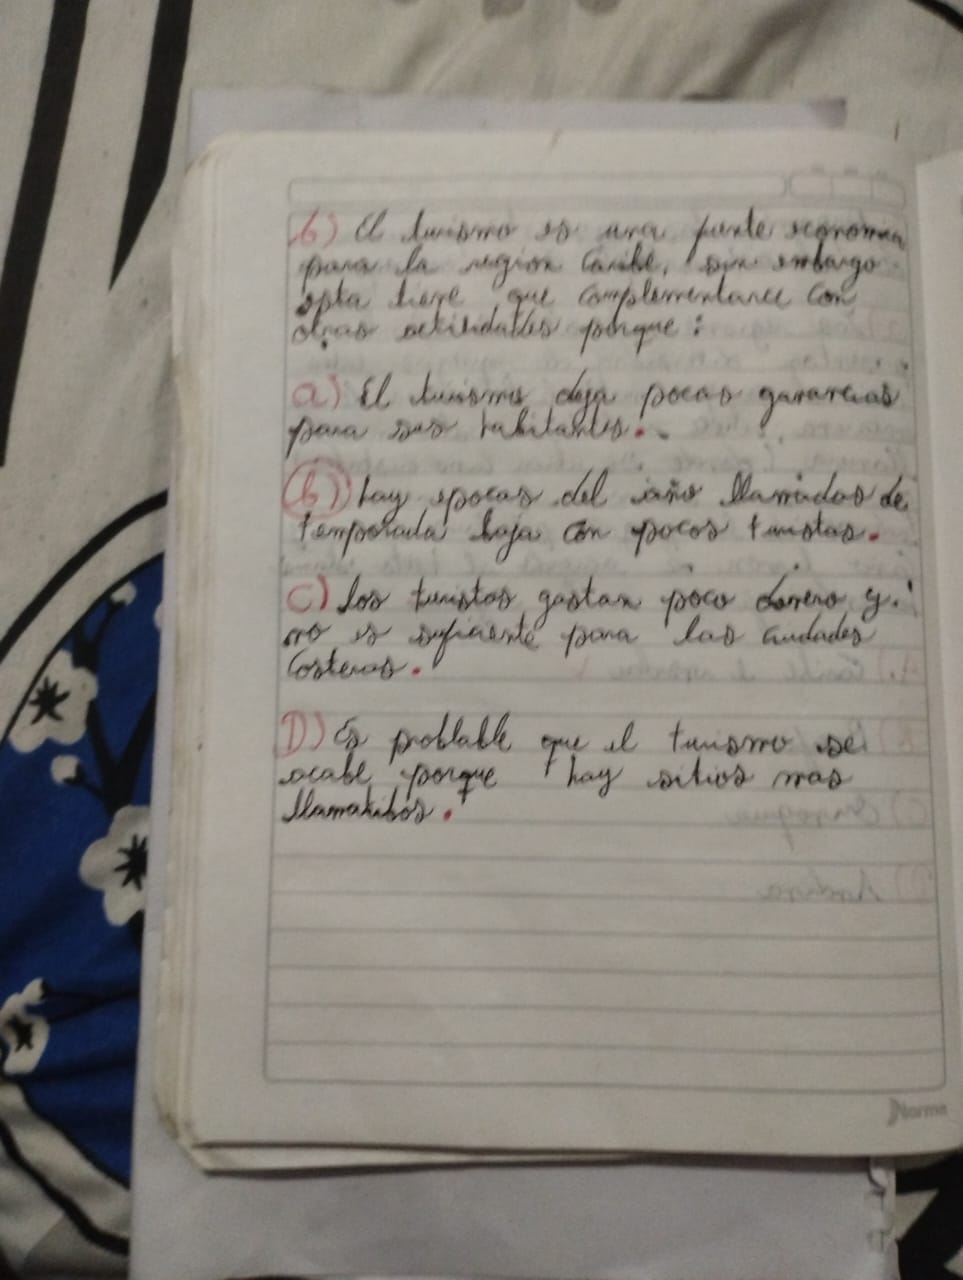 6) El turismo es una fuente economica
para la region Caribe, sin embargo
esta tiene que complementarce con
otras actividades porque:
a) El turismo deja pocas ganancias
para sus habitantes.
b) hay epocas del año llamadas de
temporada baja con pocos turistas.
C) los turistas gastan poco dinero y
no es suficiente para las ciudades
costeras.
D) Es problable que el turismo se
acabe porque hay sitios mas
llamatibos.
Norma